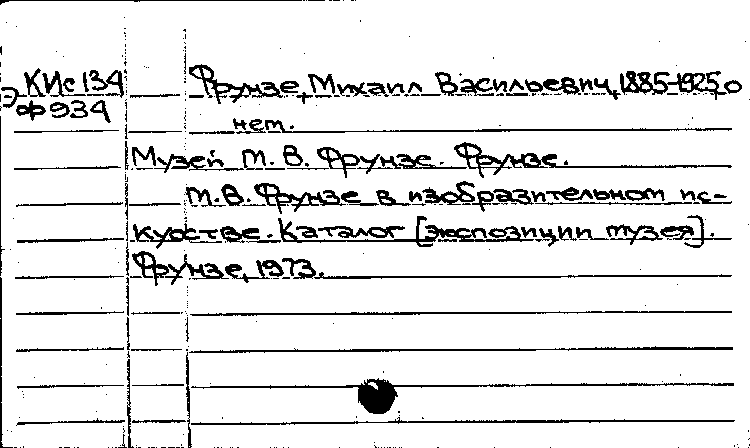 КИс134
Э Ф934
Фрунзе, Михаил Васильевич, 1885-1925, о
нем.
Музей М. В. Фрунзе. Фрунзе.
М.В. Фрунзе в изобразительном ис-
кусстве. Каталог [экспозиции музея].
Фрунзе, 1973.